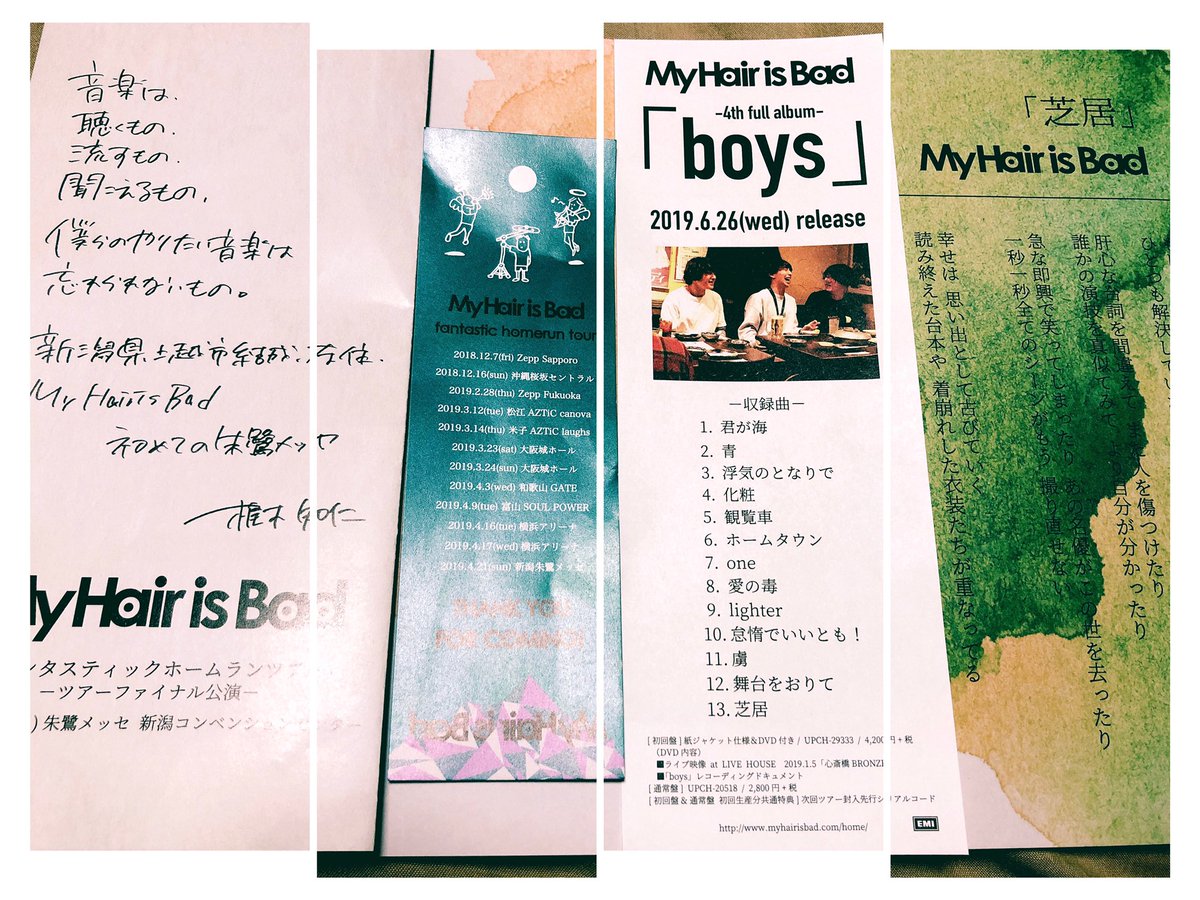 音楽は、
聴くもの、
流すもの、
聞こえるもの、
僕らのやりたい音楽は
忘れられないもの。
新潟県上越市結成
My Hair is Bad
初めての朱鷺メッセ
椎木知仁
My Hair is Bad
ンタスティックホームランツア
−ツアーファイナル公演−
) 朱鷺メッセ 新潟コンベンションセンター
My Hair is Bad
fantastic homerun tour
2018.12.7(fri) Zepp Sapporo
2018.12.16(sun) 沖縄桜坂セントラル
2019.2.28(thu) Zepp Fukuoka
2019.3.12(tue) 松江 AZTiC canova
2019.3.14(thu) 米子 AZTiC laughs
2019.3.23(sat) 大阪城ホール
2019.3.24(sun) 大阪城ホール
2019.4.3(wed) 和歌山 GATE
2019.4.9(tue) 富山 SOUL POWER
2019.4.16(tue) 横浜アリーナ
2019.4.17(wed) 横浜アリーナ
2019.4.21(sun) 新潟朱鷺メッセ
THANK YOU
FOR COMING!!
My Hair is Bad
My Hair is Bad
-4th full album-
「boys」
2019.6.26(wed) release
−収録曲−
1. 君が海
2. 青
3. 浮気のとなりで
4. 化粧
5. 観覧車
6. ホームタウン
7. one
8. 愛の毒
9. lighter
10. 怠惰でいいとも！
11. 虜
12. 舞台をおりて
13. 芝居
[ 初回盤 ] 紙ジャケット仕様&DVD付き / UPCH-29333 / 4,200円+税
（DVD内容）
■ライブ映像 at LIVE HOUSE 2019.1.5「心斎橋 BRONZE
■「boys」レコーディングドキュメント
[ 通常盤 ] UPCH-20518 / 2,800円+税
[ 初回盤&通常盤 初回生産分共通特典 ] 次回ツアー封入先行シリアルコード
http://www.myhairisbad.com/home/
EMI
「芝居」
My Hair is Bad
ひとつも解決してい
肝心な台詞を間違えて また人を傷つけたり
誰かの演技を真似てみて 自分が分かったり
急な即興で笑ってしまったり あの名優がこの世を去ったり
一秒一秒全てのシーンがもう 撮り直せない
幸せは 思い出として古びていく
読み終えた台本や 着崩れした衣装たちが重なってる